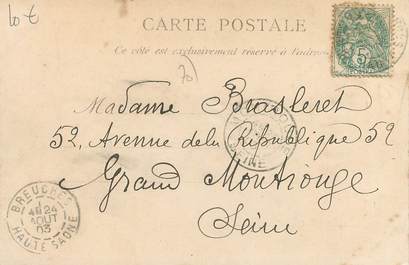 CARTE POSTALE
Ce côté est exclusivement réservé à l'adresse
70
5
Madame Brasleret
52, Avenue de la République 52
Grand Montrouge
Seine
BREUCHES
24
AOUT
03
HAUTE SAONE